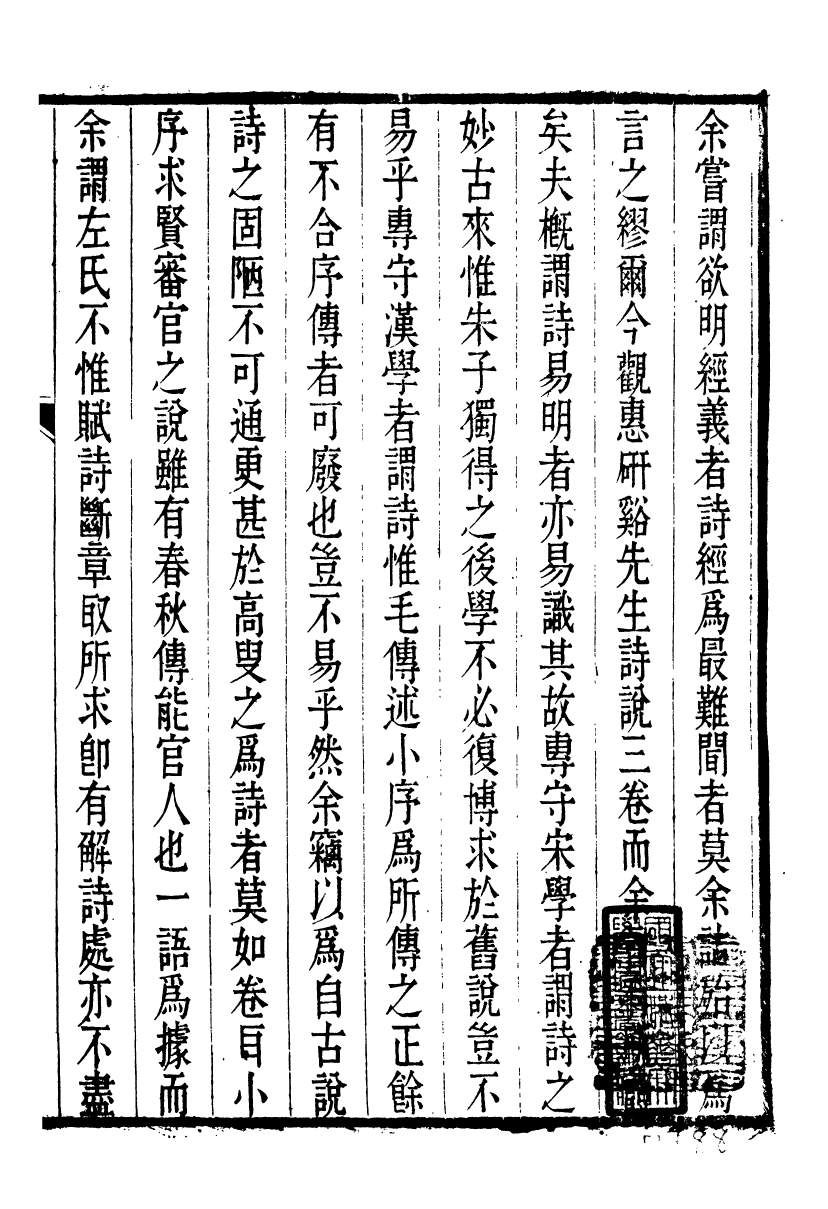 余嘗謂欲明經義者詩經爲最難間者莫余
言之繆爾今觀惠研谿先生詩說三卷而余
矣夫槪謂詩易明者亦易識其故專守宋學者謂詩之
妙古來惟朱子獨得之後學不必復博求於舊說豈不
易乎專守漢學者謂詩惟毛傳述小序爲所傳之正餘
有不合序傳者可廢也豈不易乎然余竊以爲自古說
詩之固陋不可通更甚於高叟之爲詩者莫如卷耳小
序求賢審官之說雖有春秋傳能官人也一語爲據而
余謂左氏不惟賦詩斷章取所求卽有解詩處亦不盡